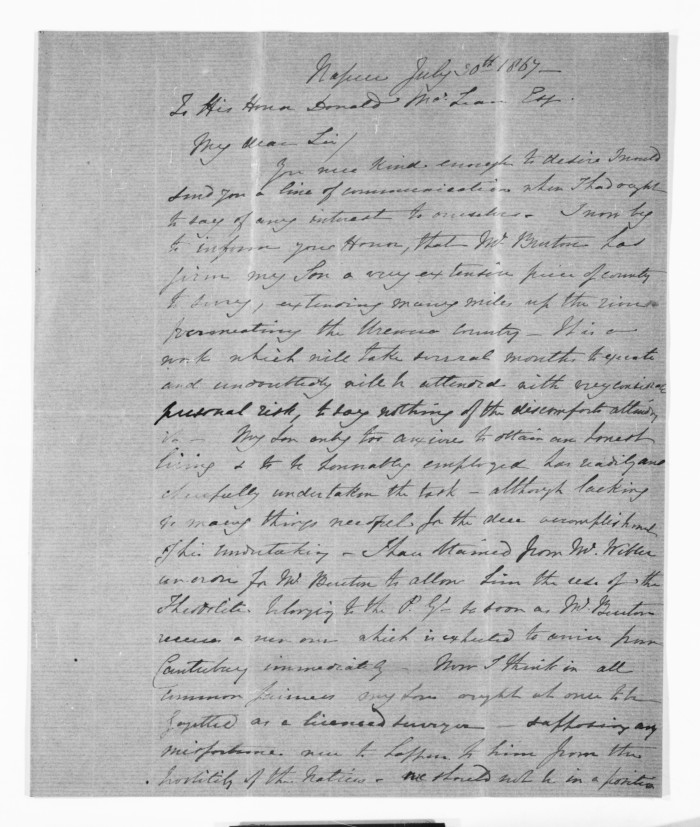 Napier July 30th 1867 —
To His Honor Donald McLean Esq.
My dear Sir/
You were kind enough to desire I would
send you a line of communication when I had ought
to say of any interest to ourselves. I now beg
to inform your Honor, that Mr Burton has
given my Son a very extensive piece of country
to survey, extending many miles up the river
permeating the country — It is a
work which will take several months to
and undoubtedly will be attended with very
personal risk, to say nothing of the discomforts attending
it — My Son only too anxious to obtain an honest
living & to be honorably employed has readily and
cheerfully undertaken the task — although lacking
so many things needful for the due accomplishment
of his undertaking — I have obtained from Mr.
an order for Mr Burton to allow him the use of the
Theodolite belonging to the P. Gt. so soon as Mr Burton
receives a new one which is expected to arrive from
Canterbury immediately — Now I think in all
common fairness my Son ought at once to be
gazetted as a licenced surveyor — supposing any
misfortune were to happen to him from the
hostility of the Natives — we should not be in a position